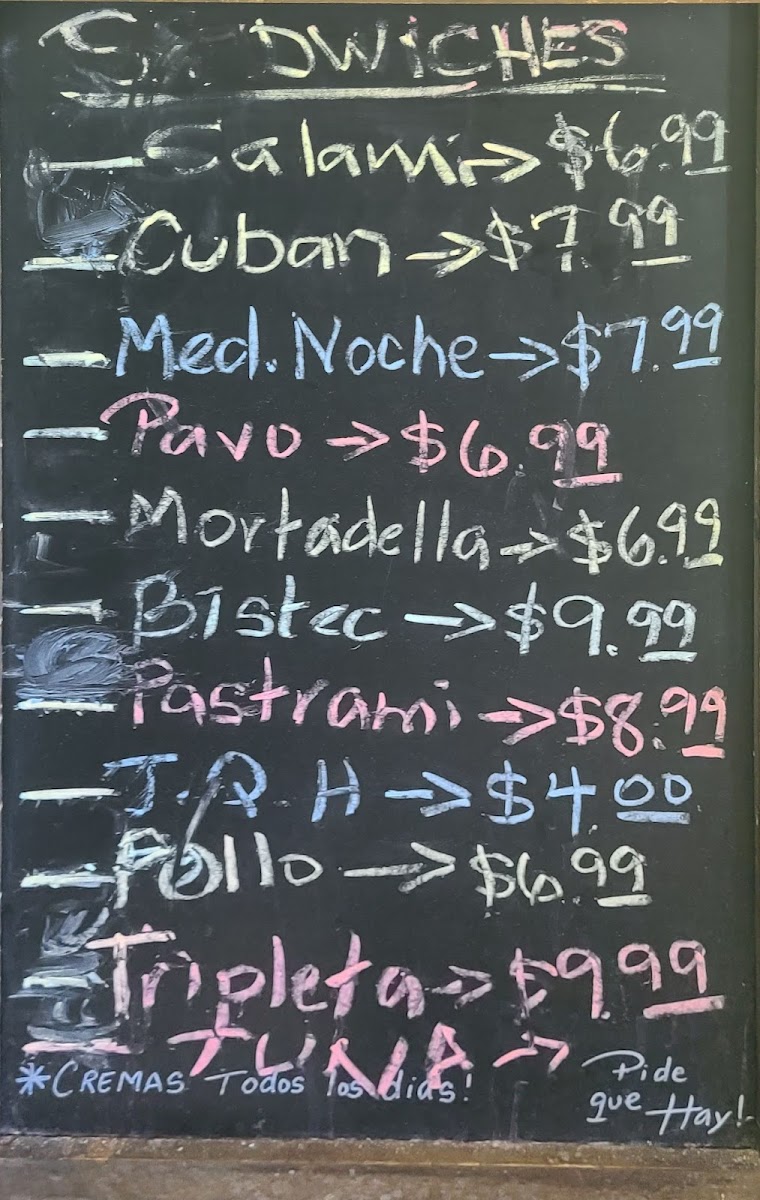 S DWiCHES
Salami → $6.99
Cuban → $7.99
Med. Noche → $7.99
Pavo → $6.99
Mortadella → $6.99
Bistec → $9.99
Pastrami → $8.99
J.Q.H → $4.00
Pollo → $6.99
Tripleta → $9.99
TUNA →
*CREMAS Todos los dias!
Pide
que Hay!